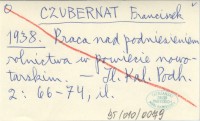 CZUBERNAT Franciszek
1938. Praca nad podniesieniem
rolnictwa w powiecie nowo-
tarskim. – Jl. Kal. Podh.
2: 66-74, il.
BJ/010/0049